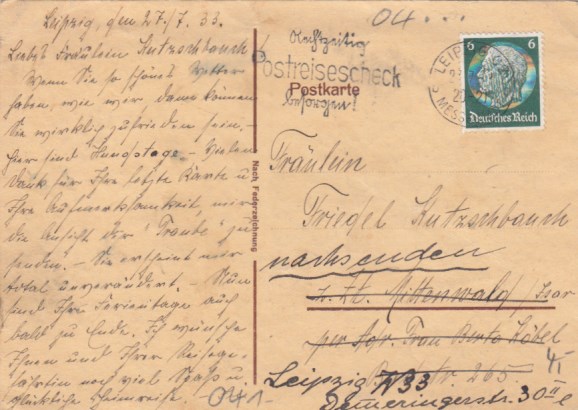 Leipzig, den 27./7. 33.
Liebes Fräulein Kutzschbauch
Wenn Sie so schönes Wetter
haben, wie wir, dann können
Sie wirklich zufrieden sein.-
hier sind Hundstage. Vielen
Dank für Ihre letzte Karte u
Ihre Aufmerksamkeit mir
die Ansicht der "Traube" zu
senden. - Sie erscheint mir
total verändert. - Nun
sind Ihre Ferientage auch
bald zu Ende. Ich wünsche
Ihnen und Ihrer Reisege-
fährtin noch viel Spaß u.
glückliche Heimreise.
041-
Nach Federzeichnung
04...
Rechtzeitig
Postreisescheck
besorgen!
Postkarte
LEIPZIG
MESS
6 6
Deutsches Reich
Fräulein
Friedel Kutzschbauch
nachsenden
z. Zt. Mittenwald/Isar
per Adr. Frau
Str. 265
Leipzig W33
Demmeringerstr. 30 II